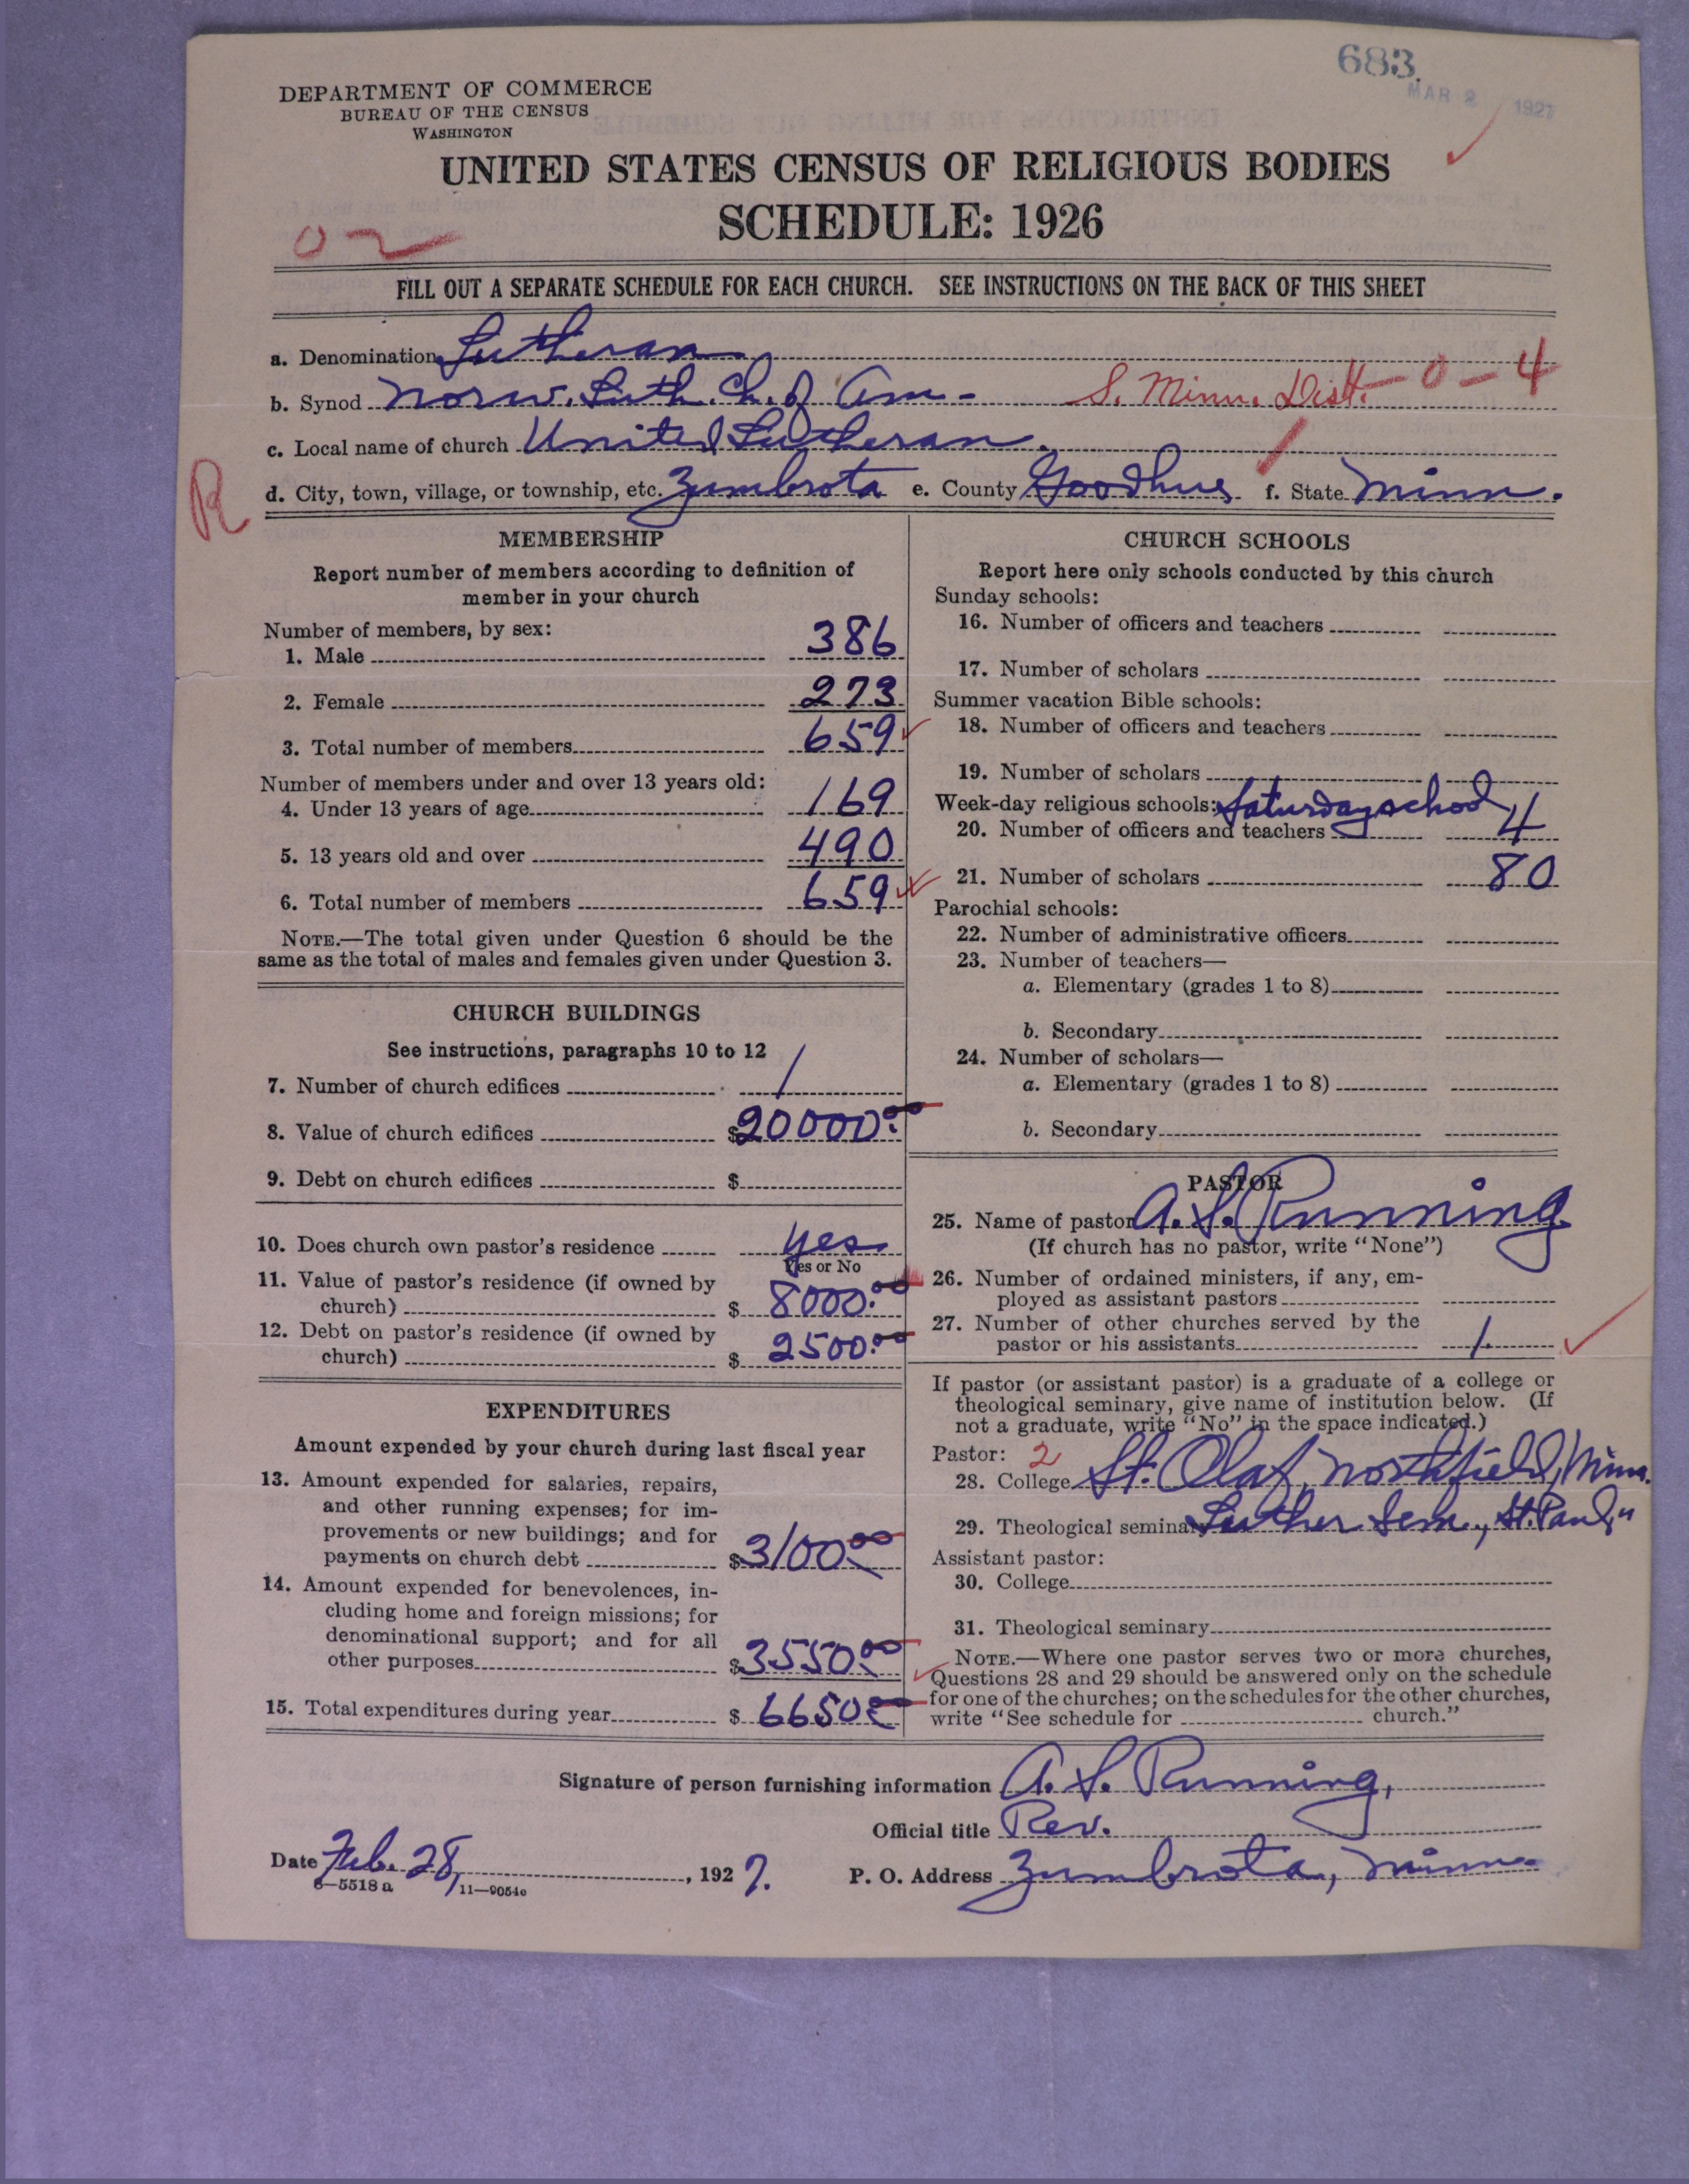 683.
MAR 2 1927
DEPARTMENT OF COMMERCE
BUREAU OF THE CENSUS
WASHINGTON
UNITED STATES CENSUS OF RELIGIOUS BODIES
SCHEDULE: 1926
FILL OUT A SEPARATE SCHEDULE FOR EACH CHURCH. SEE INSTRUCTIONS ON THE BACK OF THIS SHEET
a. Denomination Lutheran
b. Synod Norw. Luth. Ch. of Am- S. Minn. Dist. - 0 - 4
c. Local name of church United Lutheran.
R
d. City, town, village, or township, etc. Zumbrota e. County Goodhue f. State Minn.
MEMBERSHIP
Report number of members according to definition of
member in your church
Number of members, by sex:
1. Male 386
2. Female 273
3. Total number of members 659
Number of members under and over 13 years old:
4. Under 13 years of age 169
5. 13 years old and over 490
6. Total number of members 659
NOTE.—The total given under Question 6 should be the
same as the total of males and females given under Question 3.
CHURCH BUILDINGS
See instructions, paragraphs 10 to 12
7. Number of church edifices 1
8. Value of church edifices $20000.00
9. Debt on church edifices $
10. Does church own pastor's residence yes
Yes or No
11. Value of pastor's residence (if owned by
church) $ 8000.00
12. Debt on pastor's residence (if owned by
church) $ 2500.00
EXPENDITURES
Amount expended by your church during last fiscal year
13. Amount expended for salaries, repairs,
and other running expenses; for im-
provements or new buildings; and for
payments on church debt $3100.00
14. Amount expended for benevolences, in-
cluding home and foreign missions; for
denominational support; and for all
other purposes $3550.00
15. Total expenditures during year $ 6650.00
CHURCH SCHOOLS
Report here only schools conducted by this church
Sunday schools:
16. Number of officers and teachers
17. Number of scholars
Summer vacation Bible schools:
18. Number of officers and teachers
19. Number of scholars
Week-day religious schools: Saturday school
20. Number of officers and teachers 4
21. Number of scholars 80
Parochial schools:
22. Number of administrative officers
23. Number of teachers—
a. Elementary (grades 1 to 8)
b. Secondary
24. Number of scholars—
a. Elementary (grades 1 to 8)
b. Secondary
PASTOR
25. Name of pastor A. S. Running
(If church has no pastor, write "None")
26. Number of ordained ministers, if any, em-
ployed as assistant pastors
27. Number of other churches served by the
pastor or his assistants 1.
If pastor (or assistant pastor) is a graduate of a college or
theological seminary, give name of institution below. (If
not a graduate, write "No" in the space indicated.)
Pastor: 2
28. College St. Olaf, Northfield, Minn.
29. Theological seminary Luther Sem., St. Paul, "
Assistant pastor:
30. College
31. Theological seminary
NOTE.—Where one pastor serves two or more churches,
Questions 28 and 29 should be answered only on the schedule
for one of the churches; on the schedules for the other churches,
write "See schedule for church."
Signature of person furnishing information A. S. Running,
Official title Rev.
Date Feb. 28, 1927. P. O. Address Zumbrota, Minn.
8—5518 a 11—9054c